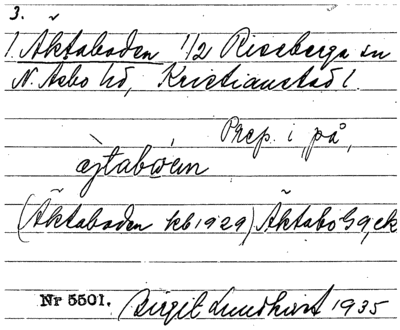 3.
1. Äktaboden 1/2 Riseberga sn
N. Åsbo hd, Kristianstad l.
Prep. i, på,
(Äktaboden kb 1929) Äktabo G9, ek
Nr 5501. Birgit Lundkvist 1935